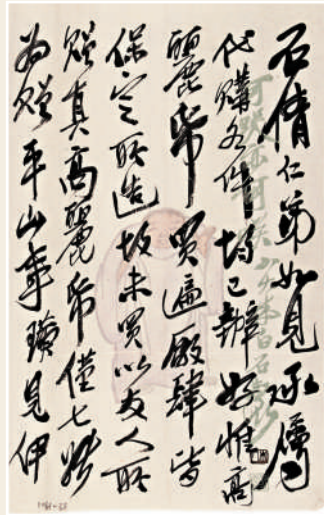 石倩仁弟如見承屬
代購各件均已辦好惟高
麗帋買遍廠肆皆
保定所造故未買以友人所
贈真高麗帋僅七
為贈平山事瓚見伊